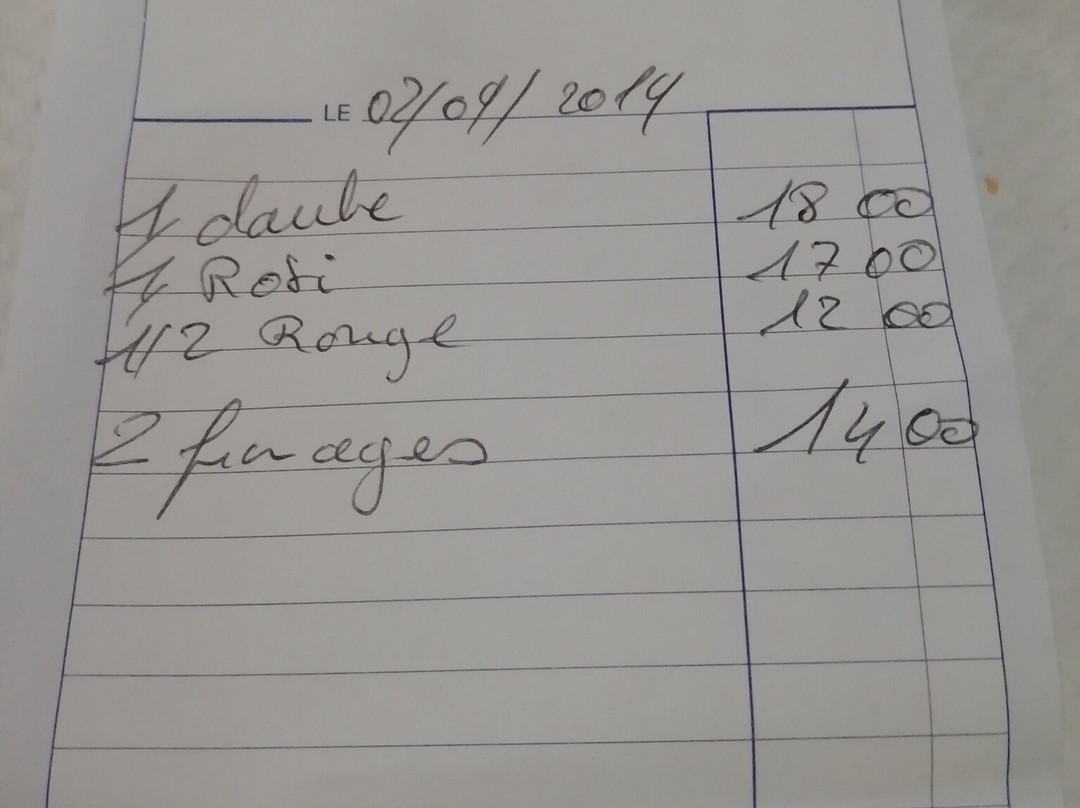 LE 02/04/2014
1 daube 18 00
1 Roti 17 00
1/2 Rouge 12 00
2 fromages 14 00